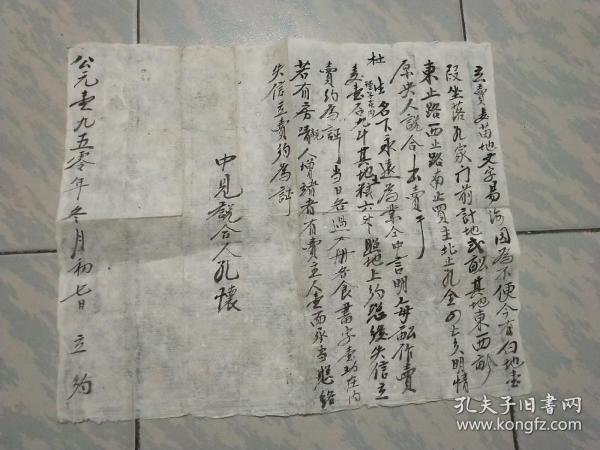 立賣麦苗地文字易海因為不便今有白地壹
段坐落孔家门前計地弍畝其地東西畝
東止路西止路南止買主北止孔全四至分明情
原央人說合出賣于
杜 名下永遠為業仝中言明每畝作賣
麦壹石九斗其地粮六升照地上约恐後失信立
賣约為証当日各過不冊各食書字壹均在内
若有房親人憎諸者有賣主人壹面承当恐後
失信立賣约為証
中見說合人孔懷
公元壹九五零年冬月初七日 立约
孔夫子旧书网
www.kongfz.com